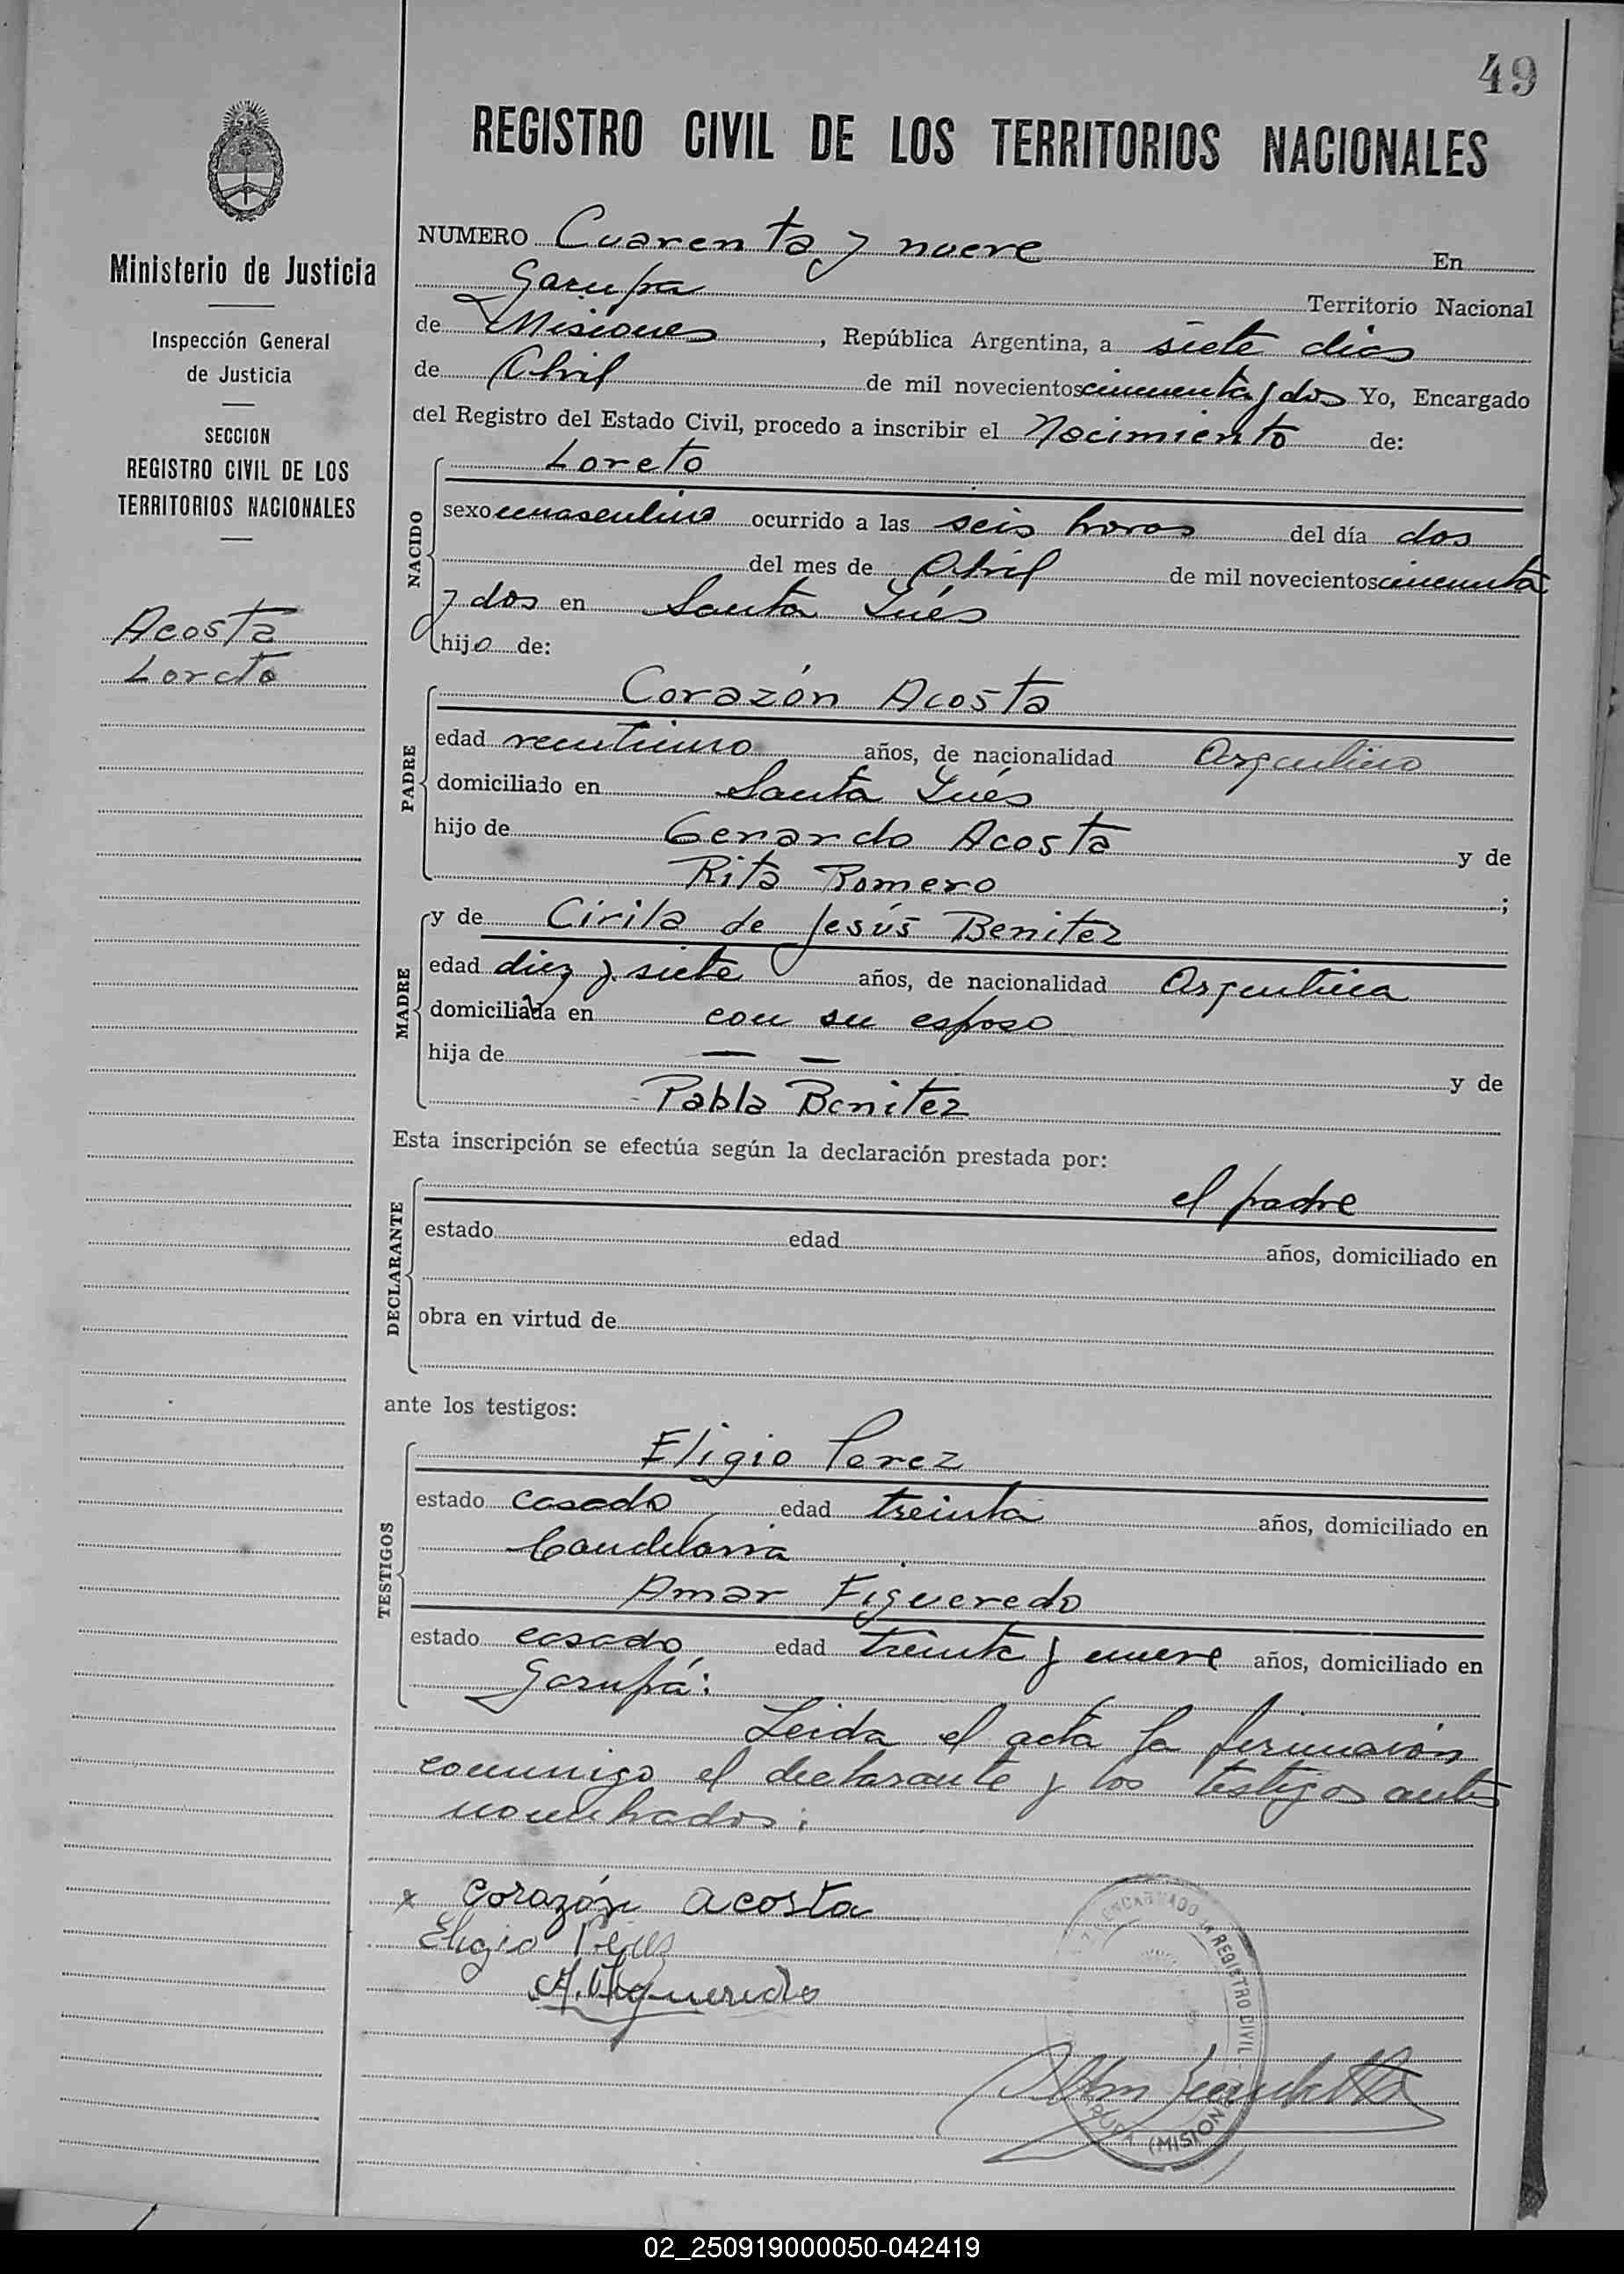 49
REGISTRO CIVIL DE LOS TERRITORIOS NACIONALES
Ministerio de Justicia
Inspección General
de Justicia
SECCION
REGISTRO CIVIL DE LOS
TERRITORIOS NACIONALES
Acosta
Loreto
NUMERO Cuarenta y nueve En
Garupa Territorio Nacional
de Misiones, República Argentina, a siete dias
de Abril de mil novecientos cincuenta y dos Yo, Encargado
del Registro del Estado Civil, procedo a inscribir el Nacimiento de:
NACIDO
Loreto
sexo masculino ocurrido a las seis horas del día dos
del mes de Abril de mil novecientos cincuenta
y dos en Santa Inés
hijo de:
PADRE
Corazón Acosta
edad veintiuno años, de nacionalidad Argentino
domiciliado en Santa Inés
hijo de Genardo Acosta y de
Rita Romero ;
MADRE
y de Cirila de Jesús Benitez
edad diez y siete años, de nacionalidad Argentina
domiciliada en con su esposo
hija de — — y de
Pabla Benitez
Esta inscripción se efectúa según la declaración prestada por:
DECLARANTE
el padre
estado edad años, domiciliado en
obra en virtud de
ante los testigos:
TESTIGOS
Eligio Perez
estado casado edad treinta años, domiciliado en
Candelaria
Amar Figueredo
estado casado edad treinta y nueve años, domiciliado en
Garupá:
Leida el acta la firmaron
conmigo el declarante y los testigos antes
nombrados:
x Corazón acosta
Eligio Perez
A. Figueredo
ENCARGADO REGISTRO CIVIL
GARUPA (MISIONES)
02_250919000050-042419